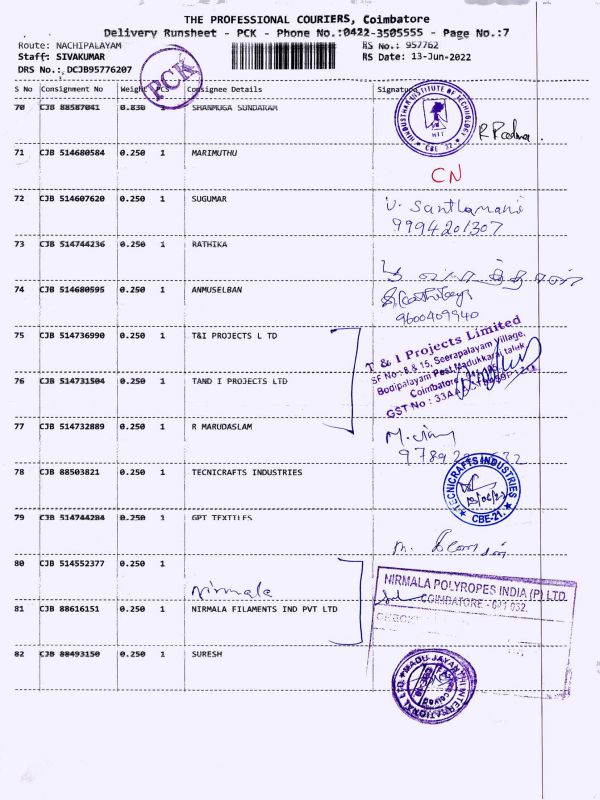 THE PROFESSIONAL COURIERS, Coimbatore
Delivery Runsheet - PCK - Phone No.:0422-3505555 - Page No.:7
Route: NACHIPALAYAM
RS No.: 957762
Staff: SIVAKUMAR
RS Date: 13-Jun-2022
DRS No.: DCJB95776207
PCK
S No Consignment No Weight PCS Consignee Details Signature
70 CJB 88587041 0.830 SHANMUGA SUNDARAM
HINDUSTHAN INSTITUTE OF TECHNOLOGY
HIT
* CBE 32 *
R Padma.
71 CJB 514680584 0.250 1 MARIMUTHU
CN
72 CJB 514607620 0.250 1 SUGUMAR
V. Santhamani
9994201307
73 CJB 514744236 0.250 1 RATHIKA
74 CJB 514680595 0.250 1 ANMUSELBAN
9600409940
75 CJB 514736990 0.250 1 T&I PROJECTS L TD
T & I Projects Limited
SF No : 8 & 15, Seerapalayam Village,
Bodipalayam Post, Madukkarai taluk
Coimbatore
GST No : 33AA
76 CJB 514731504 0.250 1 TAND I PROJECTS LTD
77 CJB 514732889 0.250 1 R MARUDASLAM
78 CJB 88503821 0.250 1 TECNICRAFTS INDUSTRIES
TECNICRAFTS INDUSTRIES
* CBE-21. *
79 CJB 514744284 0.250 1 GPT TEXTILES
80 CJB 514552377 0.250 1
Nirmala
NIRMALA POLYROPES INDIA (P) LTD.
COIMBATORE - 641 032.
81 CJB 88616151 0.250 1 NIRMALA FILAMENTS IND PVT LTD
82 CJB 88493150 0.250 1 SURESH
INTERNATIONAL LTD.